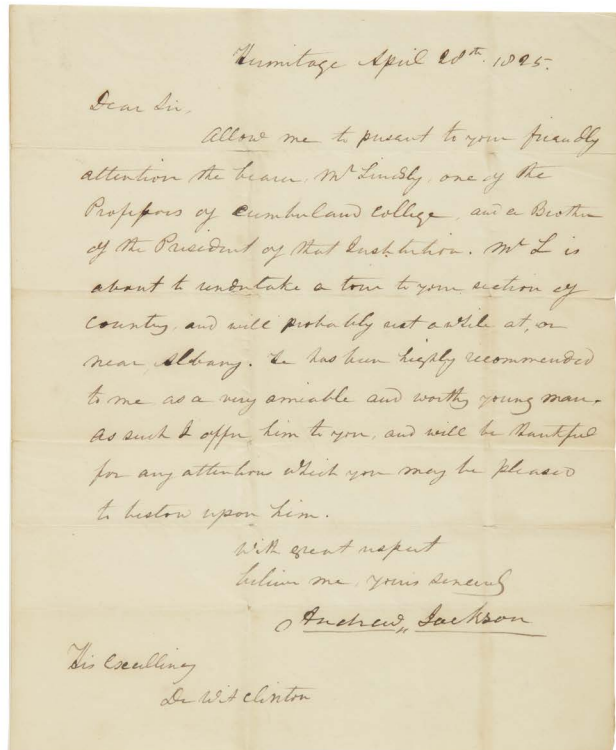 Hermitage April 28th. 1825.
Dear Sir,
Allow me to present to your friendly
attention the bearer, Mr Lindsly, one of the
Professors of Cumberland College, and a Brother
of the President of that Institution. Mr L is
about to undertake a tour to your section of
Country, and will probably rest awhile at, or
near, Albany. He has been highly recommended
to me as a very amiable and worthy young man.
As such I offer him to you, and will be thankful
for any attentions which you may be pleased
to bestow upon him.
With great respect
believe me, yours sincerely
Andrew Jackson
His Excellency
De Wit Clinton